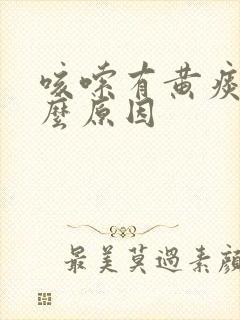 咳嗽有黄痰
麼原因
最美莫過素顏